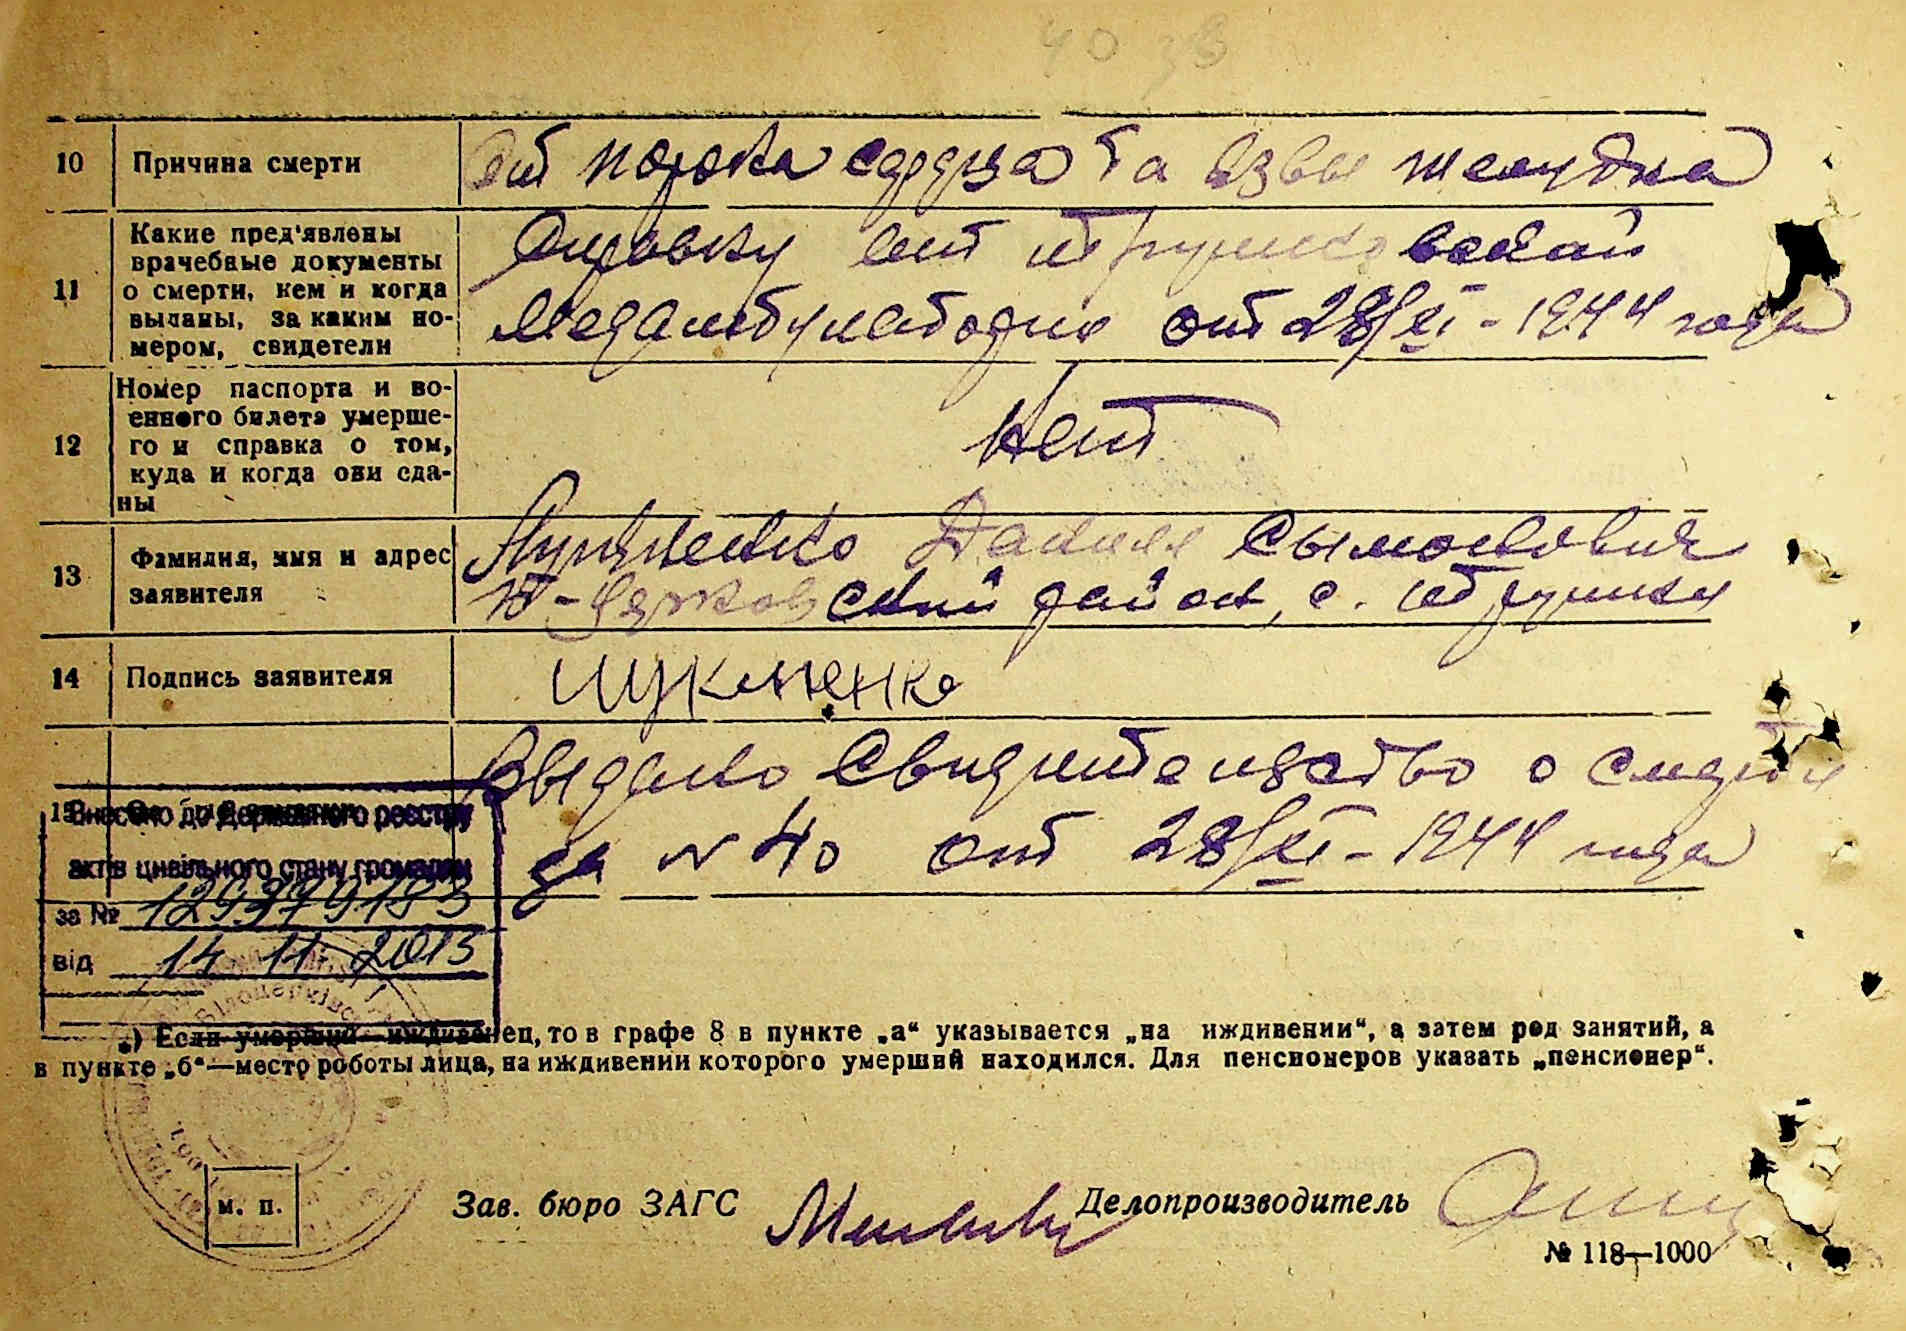 40 зв
10 Причина смерти от порока сердца та язвы желудка
11 Какие пред'явлены
врачебные документы
о смерти, кем и когда
выданы, за каким но-
мером, свидетели
Справку от
Медамбулатория от 28/XI - 1944 года
12 Номер паспорта и во-
енного билета умерше-
го и справка о том,
куда и когда они сда-
ны
Нет
13 Фамилия, имя и адрес
заявителя
Данил Сымонович
район, с.
14 Подпись заявителя
Выдано Свидительство о смерти
за № 40 от 28/XI - 1944 года
15
Внесено до Державного реєстру
актів цивільного стану громадян
за № 129379183
від 14.11.2013
*) Если умерший иждивенец, то в графе 8 в пункте „а“ указывается „на иждивении“, а затем род занятий, а
в пункте „б“—место роботы лица, на иждивении которого умерший находился. Для пенсионеров указать „пенсионер“.
м. п.
Зав. бюро ЗАГС Делопроизводитель
№ 118—1000